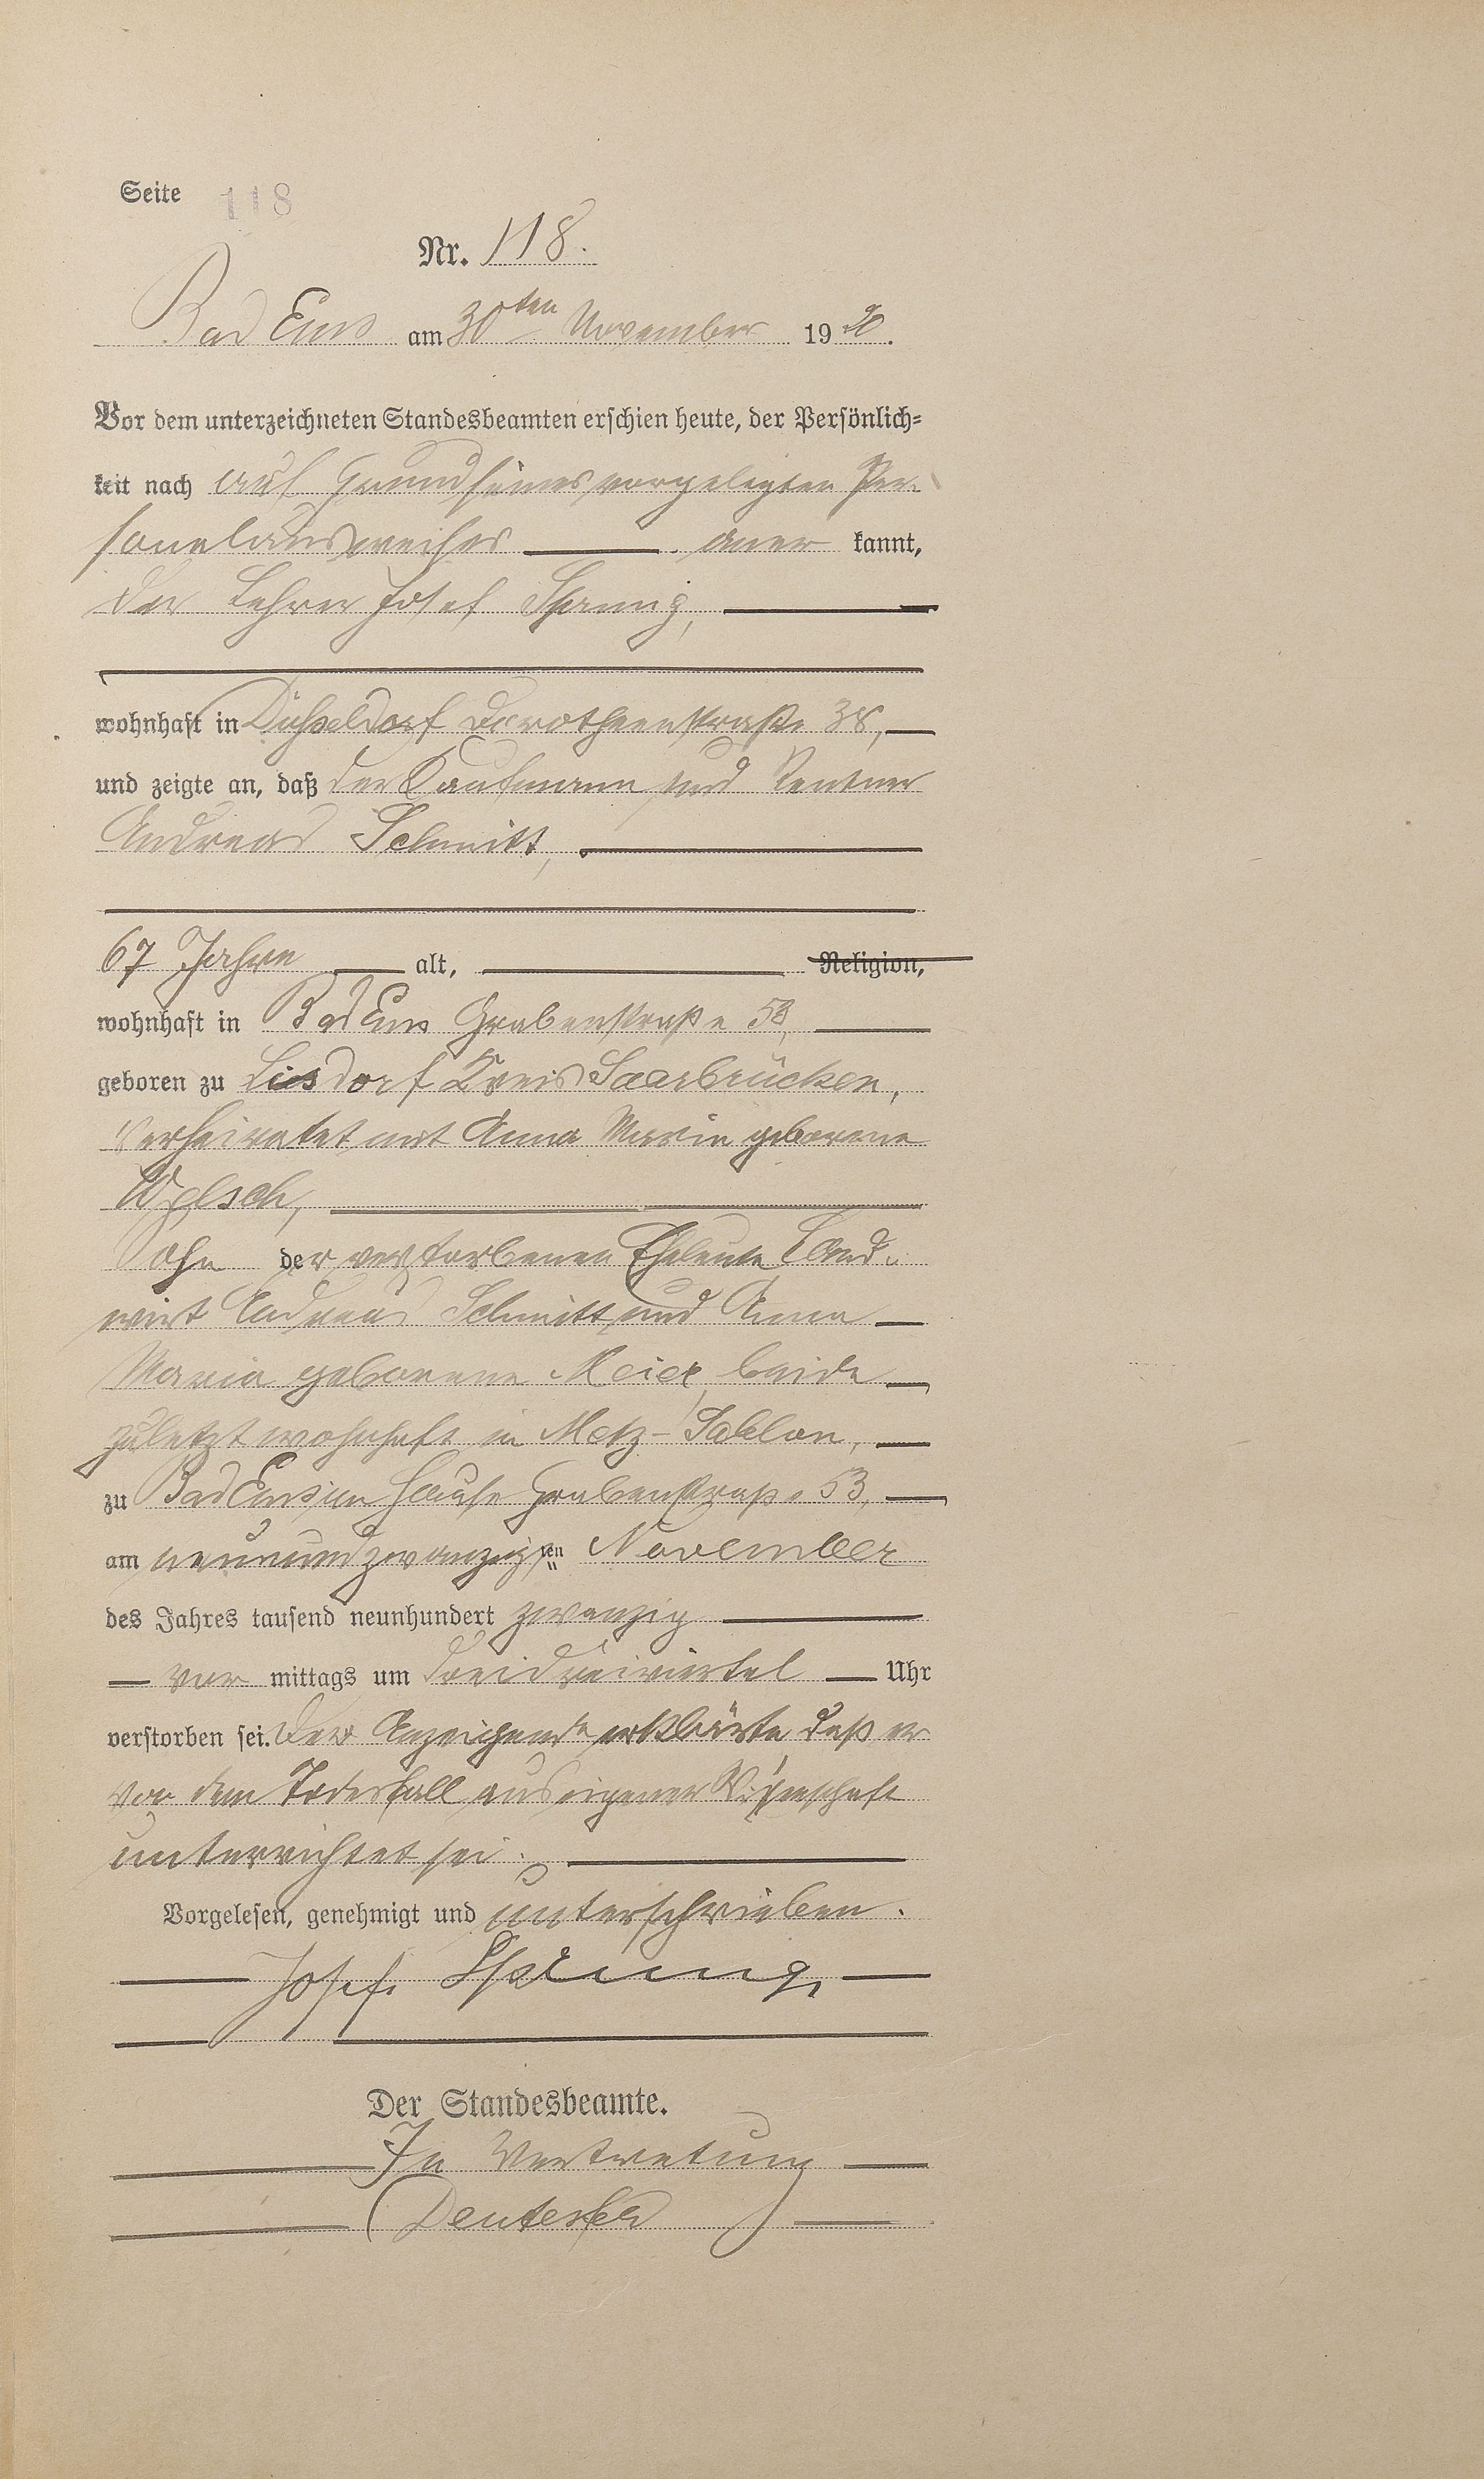 Seite 118
Nr. 118.
Bad Ems am 30ten November 1920.
Vor dem unterzeichneten Standesbeamten erschien heute, der Persönlich=
keit nach auf Grund seines vorgelegten Per-
sonalausweises anerkannt,
der Lehrer Josef Sprung,
wohnhaft in Düsseldorf Dorotheenstraße 38,
und zeigte an, daß der Kaufmann und Rentner
Andreas Schmitt,
67 Jahre alt, Religion,
wohnhaft in Bad Ems Grabenstraße 53,
geboren zu Lisdorf Kreis Saarbrücken,
verheiratet mit Anna Maria geborene
Welsch,
Sohn der verstorbenen Eheleute Land-
wirt Andreas Schmitt und Anna
Maria geborene Meier, beide
zuletzt wohnhaft in Metz-Sablon,
zu Bad Ems im Hause Grabenstraße 53,
am neunundzwanzigsten November
des Jahres tausend neunhundert zwanzig
vor mittags um dreidreiviertel Uhr
verstorben sei. Der Anzeigende erklärte daß er
von dem Todesfall aus eigener Wissenschaft
unterrichtet sei.
Vorgelesen, genehmigt und unterschrieben.
Josef Sprung,
Der Standesbeamte.
In Vertretung